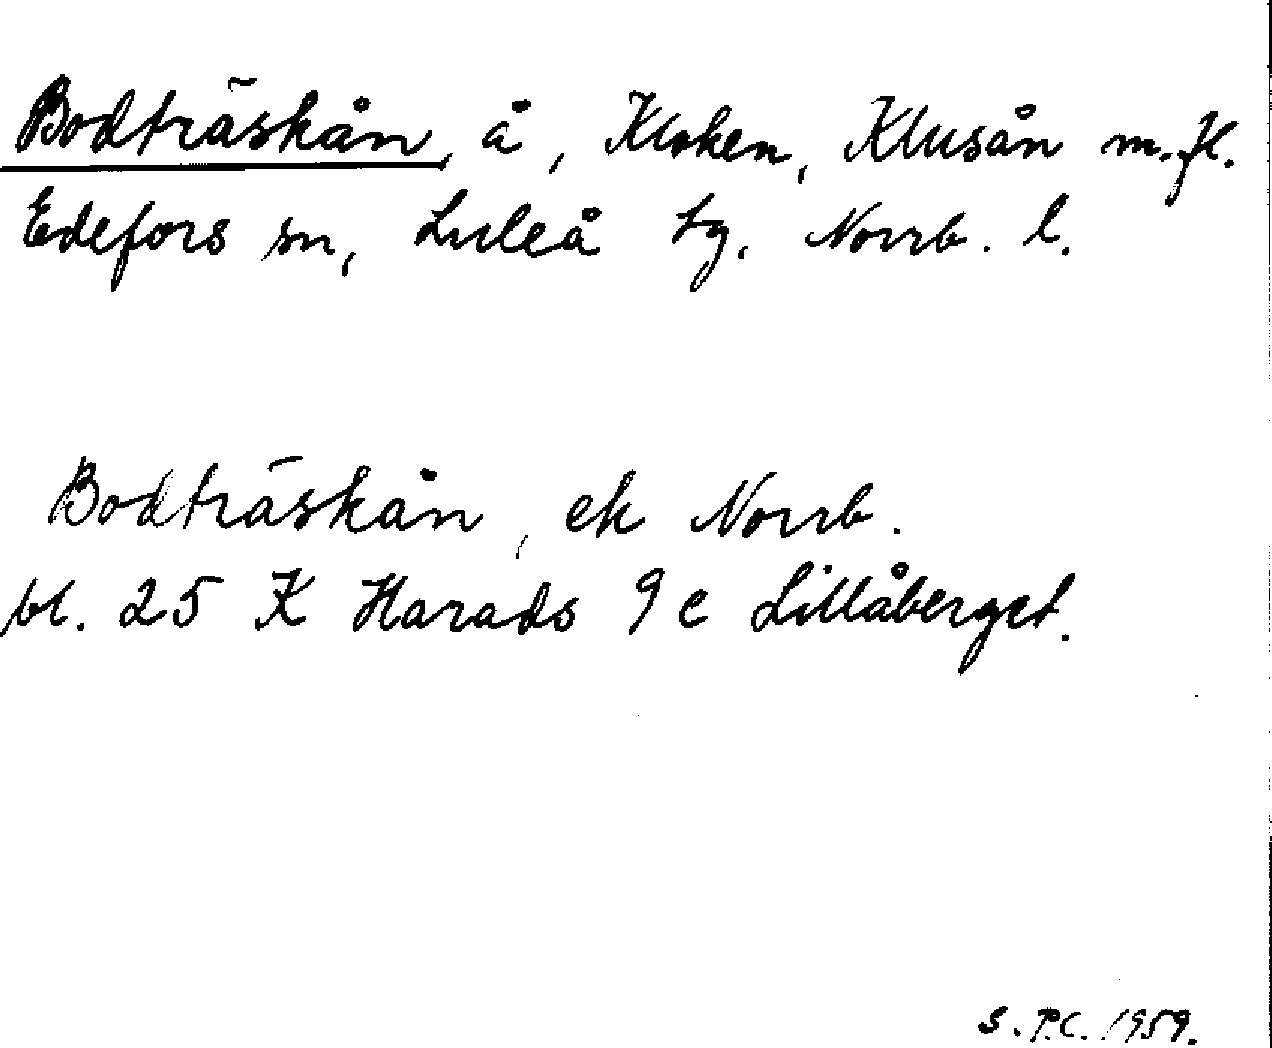 Bodträskån, å, Kloken, Klusån m.fl.
Edefors sn, Luleå tg. Norrb. l.
Bodträskån, ek Norrb.
bl. 25 K Harads 9 c Lillåberget.
S.P.C. 1959.